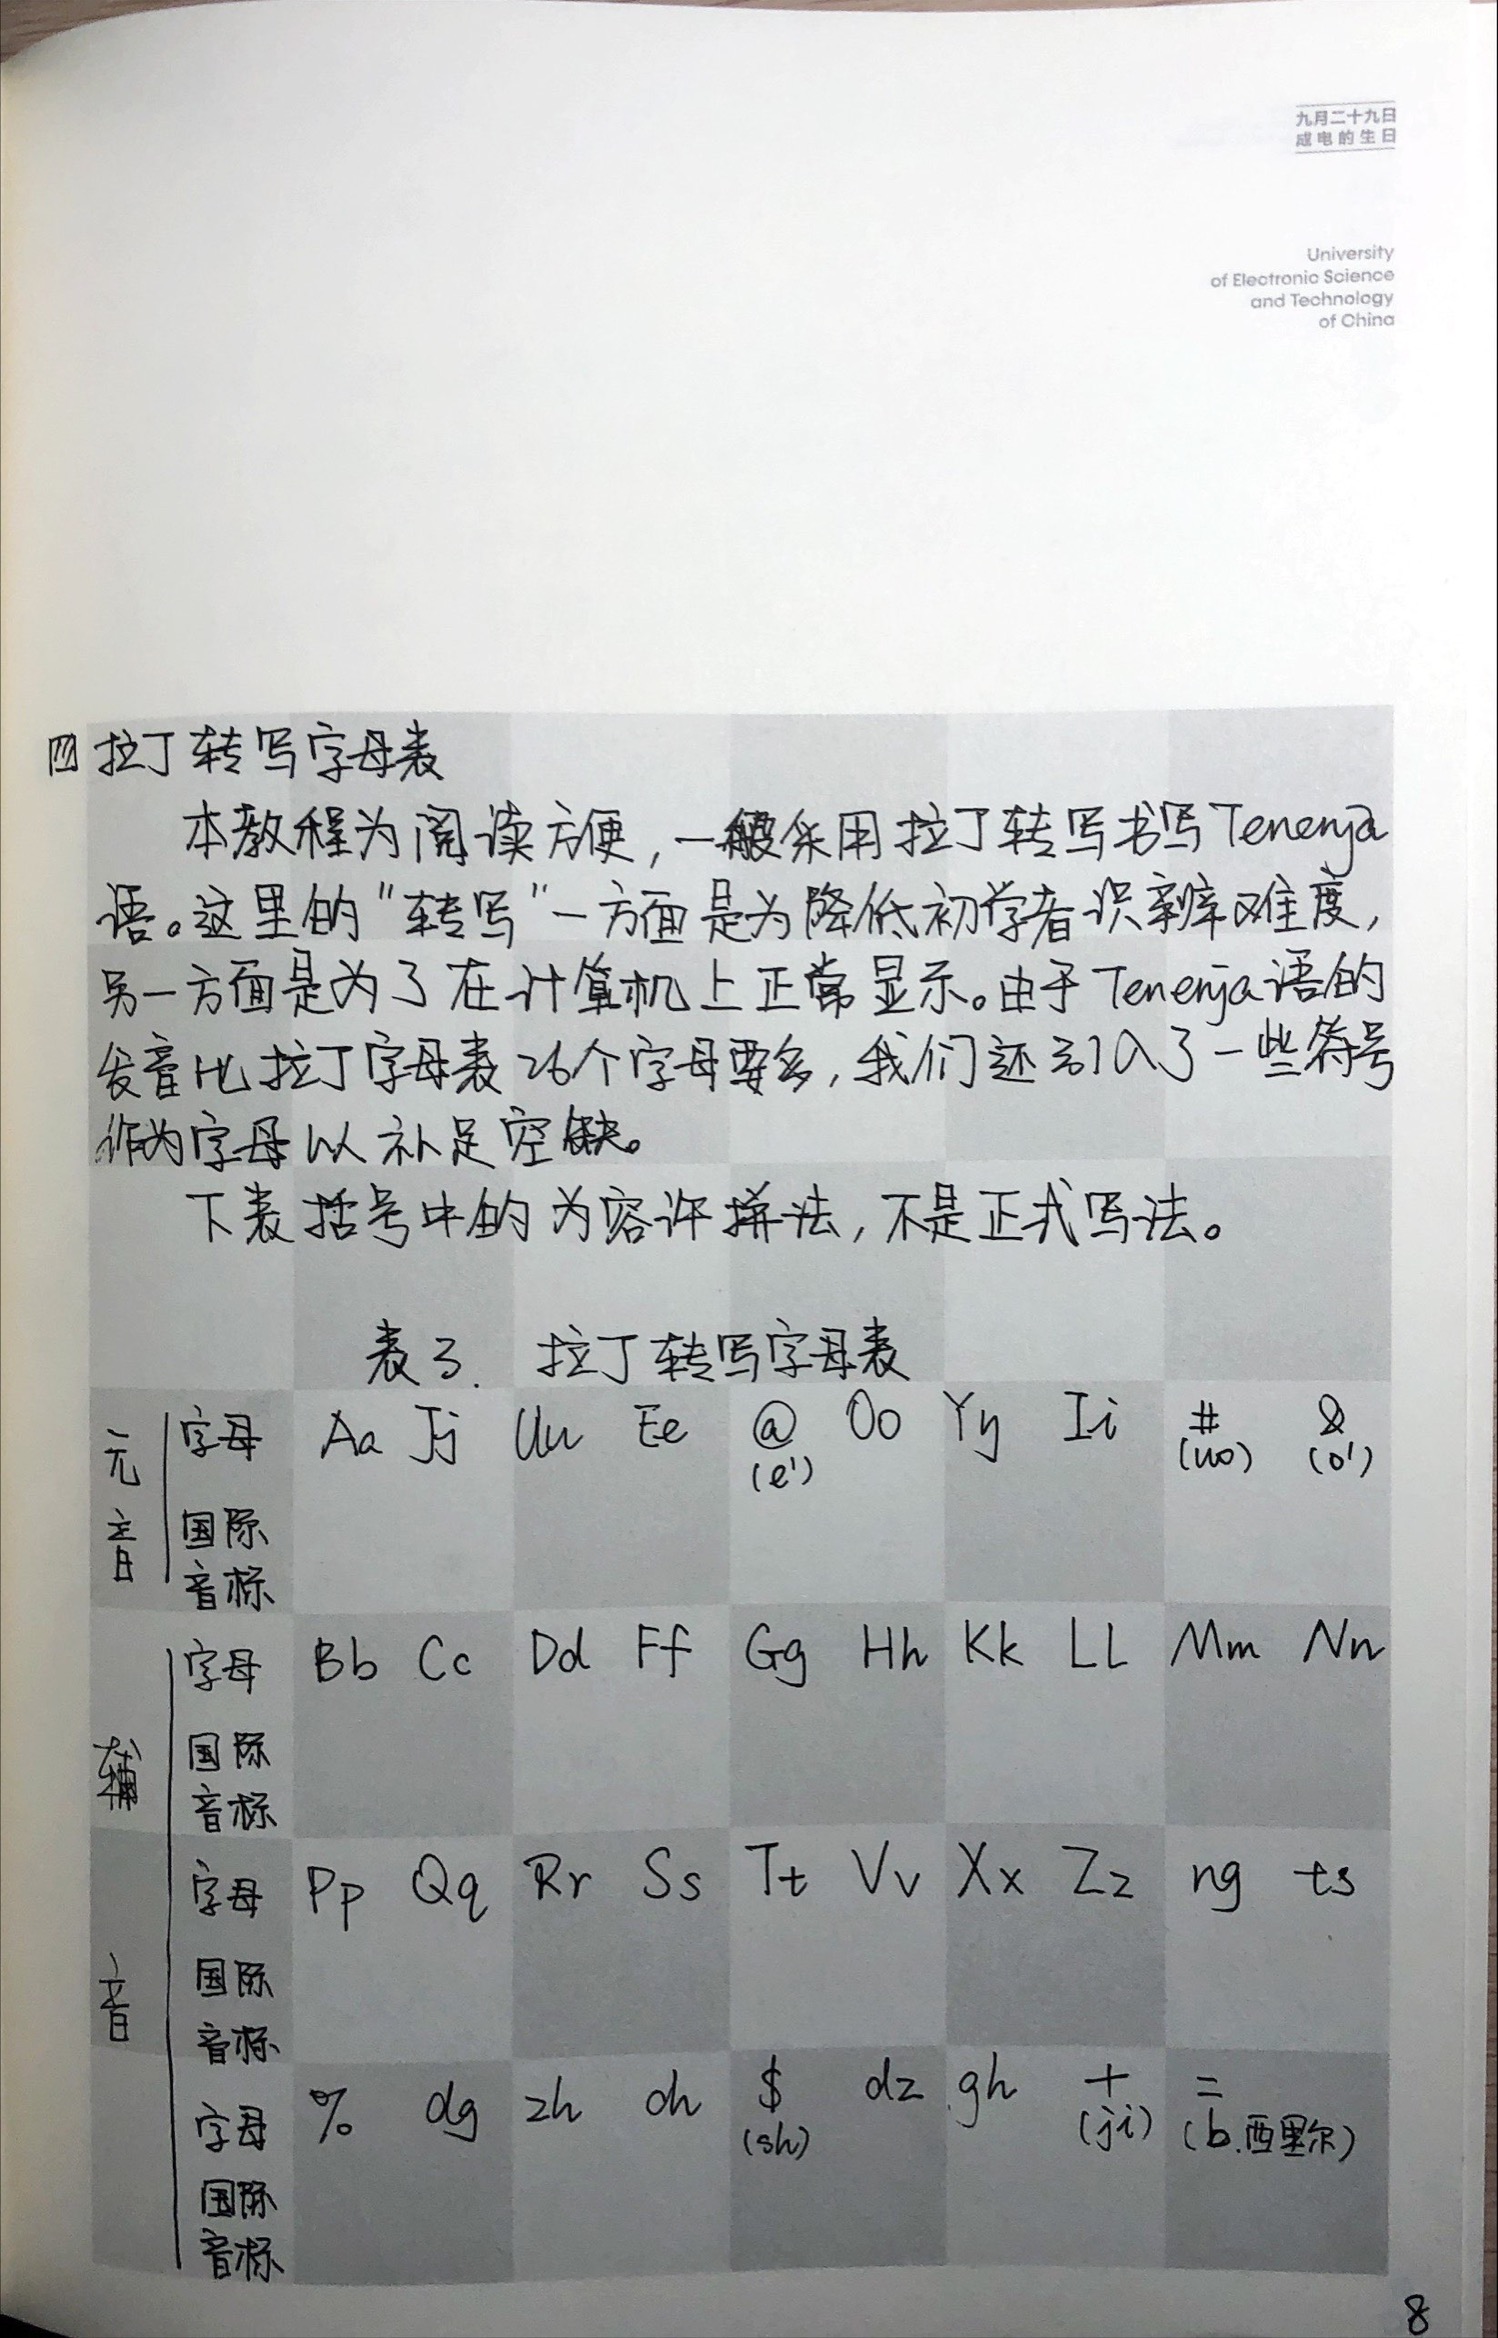 九月二十九日
成电的生日
University
of Electronic Science
and Technology
of China
四 拉丁转写字母表
本教程为阅读方便,一般采用拉丁转写书写Tenenja
语。这里的"转写"一方面是为降低初学者识辨难度,
另一方面是为了在计算机上正常显示。由于Tenenja语的
发音比拉丁字母表26个字母要多,我们还引入了一些符号
作为字母以补足空缺。
下表括号中的为容许拼法,不是正式写法。
表3. 拉丁转写字母表
元音
字母 Aa Jj Uu Ee @ Oo Yy Ii # &
(e') (uo) (o')
国际
音标
辅音
字母 Bb Cc Dd Ff Gg Hh Kk Ll Mm Nn
国际
音标
字母 Pp Qq Rr Ss Tt Vv Xx Zz ng ts
国际
音标
字母 % dg zh dh $ dz gh + =
(sh) (ji) (b.西里尔)
国际
音标
8